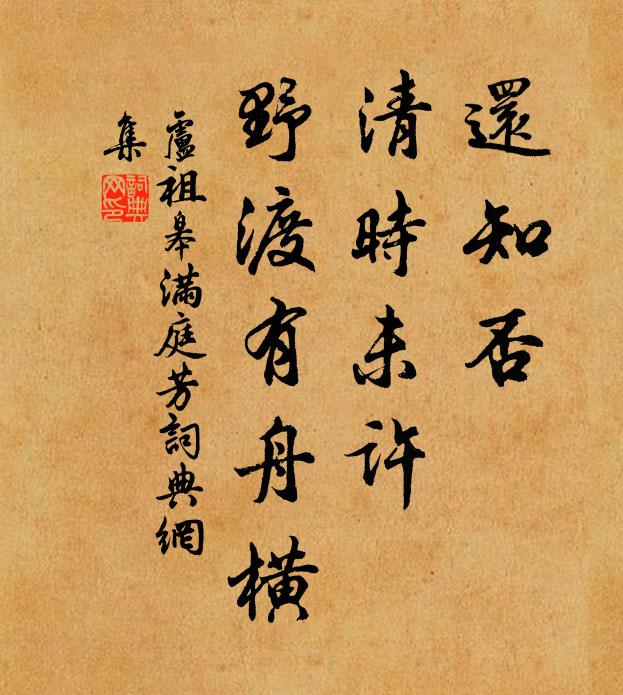 還知否
清時未許
野渡有舟橫
盧祖皋滿庭芳詞典網
集
詞典
网印